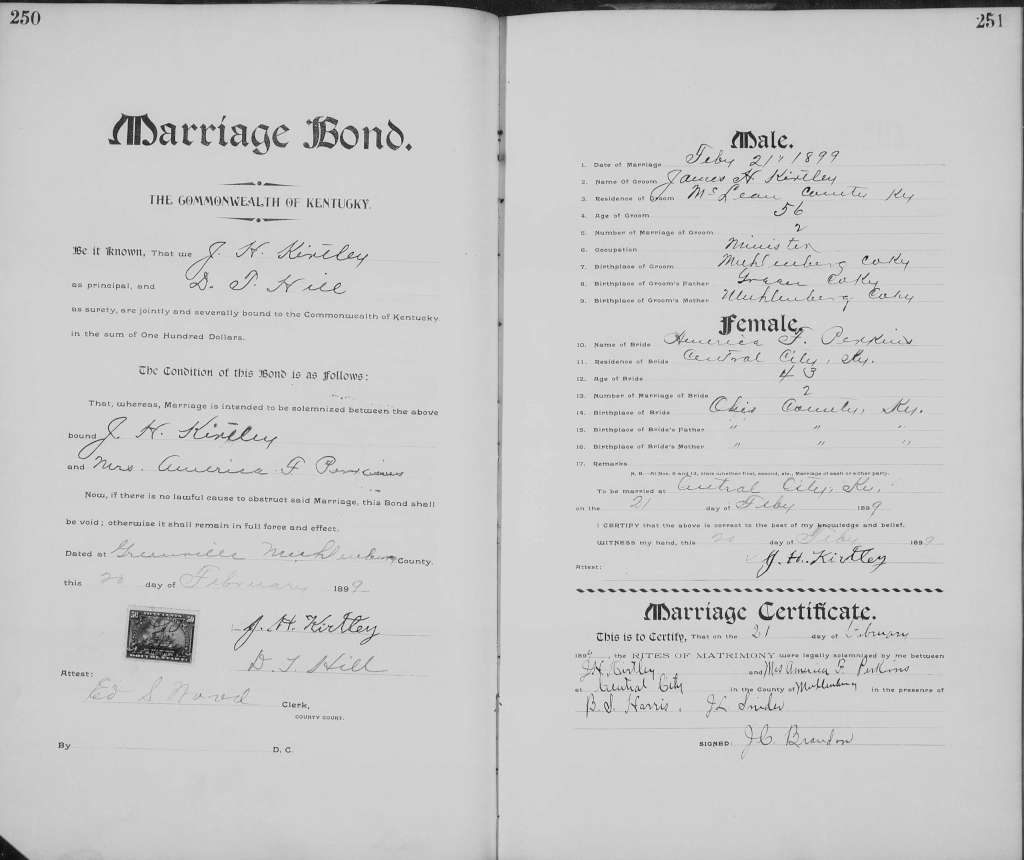 250
Marriage Bond.
THE COMMONWEALTH OF KENTUCKY.
Be it Known, That we J. H. Kirtley
as principal, and D. T. Hill
as surety, are jointly and severally bound to the Commonwealth of Kentucky
in the sum of One Hundred Dollars.
The Condition of this Bond is as Follows:
That, whereas, Marriage is intended to be solemnized between the above
bound J. H. Kirtley
and Mrs. America F Perkins
Now, if there is no lawful cause to obstruct said Marriage, this Bond shall
be void; otherwise it shall remain in full force and effect.
Dated at Greenville Muhlenberg County.
this 20 day of February 1899
J. H. Kirtley
D. T. Hill
Attest:
Ed S Wood Clerk,
COUNTY COURT.
By D. C.
251
Male.
1. Date of Marriage Feby 21" 1899
2. Name Of Groom James H. Kirtley
3. Residence of Groom McLean County Ky
4. Age of Groom 56
5. Number of Marriage of Groom 2
6. Occupation Minister
7. Birthplace of Groom Muhlenberg Co Ky
8. Birthplace of Groom's Father Green Co Ky
9. Birthplace of Groom's Mother Muhlenberg Co Ky
Female.
10. Name of Bride America F. Perkins
11. Residence of Bride Central City, Ky.
12. Age of Bride 43
13. Number of Marriage of Bride 2
14. Birthplace of Bride Ohio County, Ky.
15. Birthplace of Bride's Father " " "
16. Birthplace of Bride's Mother " " "
17. Remarks
N. B.—At Nos. 5 and 13, state whether first, second, etc., Marriage of each or either party.
To be married at Central City, Ky.
on the 21 day of Feby 1899
I CERTIFY that the above is correct to the best of my knowledge and belief.
WITNESS my hand, this 20 day of Feby 1899
J. H. Kirtley
Attest:
Marriage Certificate.
This is to Certify, That on the 21 day of February
1899, the RITES OF MATRIMONY were legally solemnized by me between
J H Kirtley and Mrs America F Perkins
at Central City in the County of Muhlenburg in the presence of
B. S. Harris, J L Snider
SIGNED: J. C. Brandon